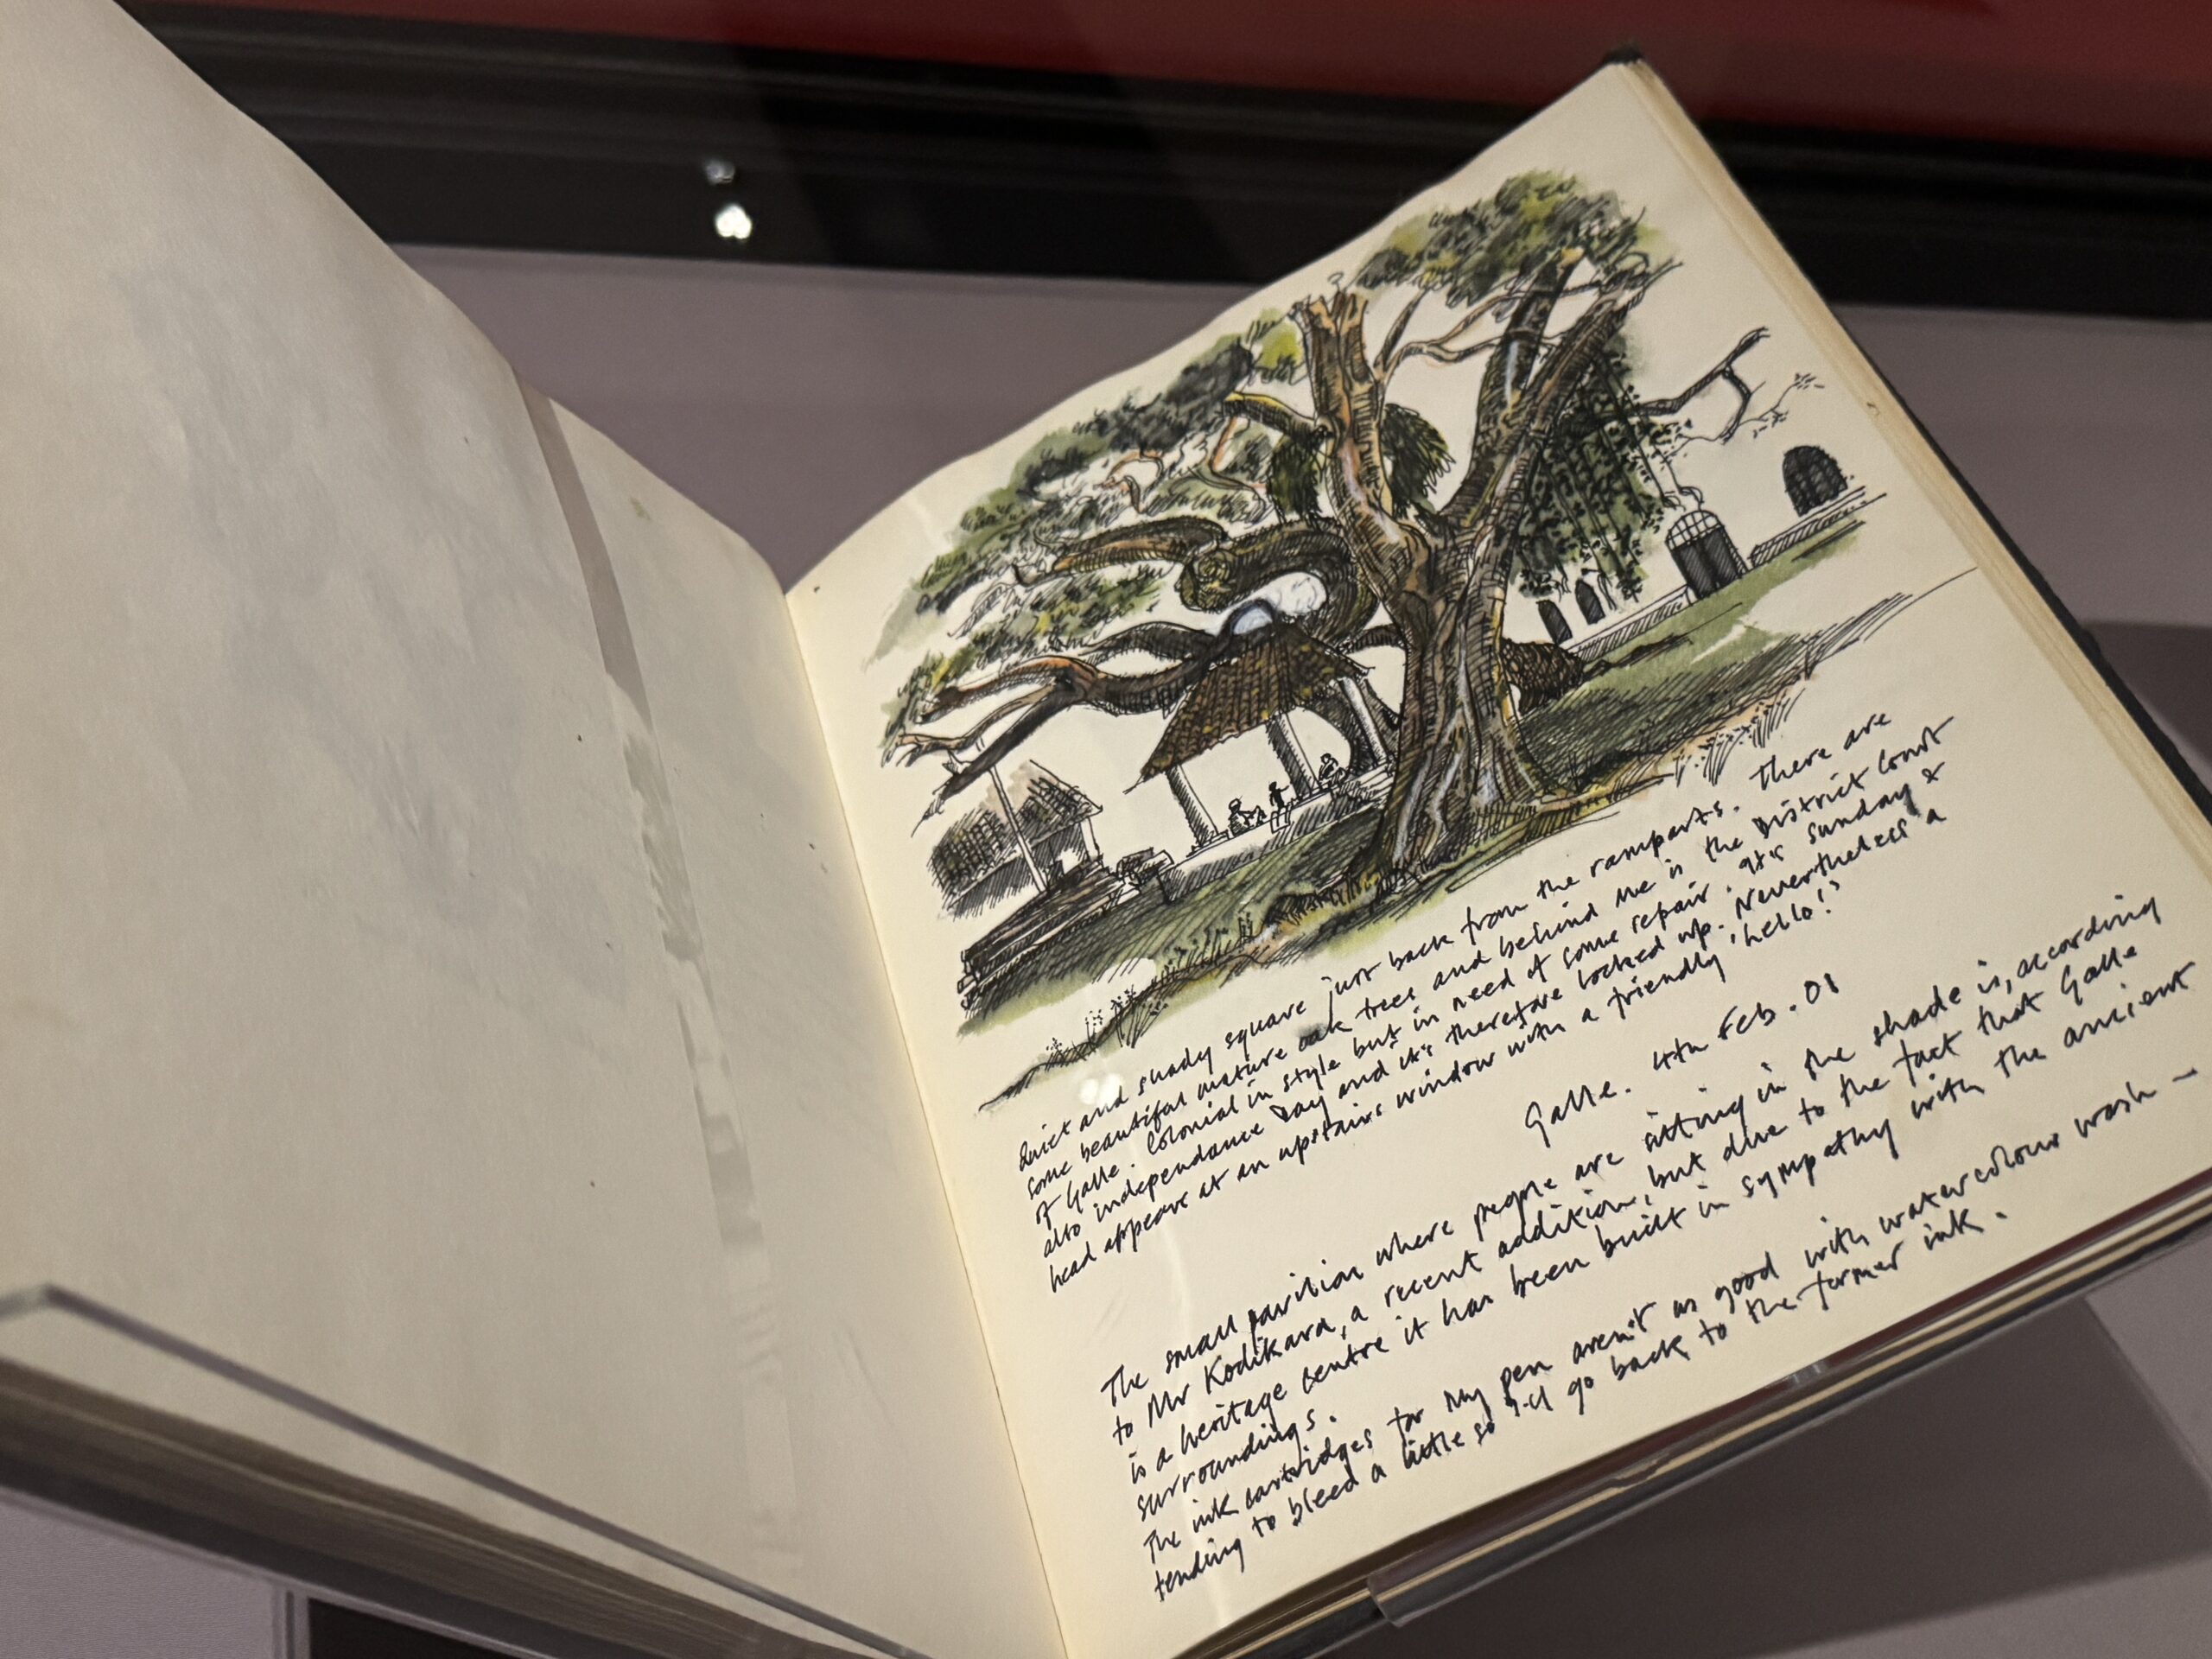 Quiet and shady square just back from the ramparts. There are
some beautiful mature oak trees and behind me is the District Court
of Galle. Colonial in style but in need of some repair. It's Sunday &
also independance Day and it's therefore locked up. Nevertheless a
head appears at an upstairs window with a friendly 'hello!'
Galle. 4th Feb. 01
The small pavilion where people are sitting in the shade is, according
to Mr Kodikara, a recent addition, but due to the fact that Galle
is a heritage centre it has been built in sympathy with the ancient
surroundings.
The ink cartridges for my pen aren't as good with watercolour wash –
tending to bleed a little so I'll go back to the former ink.